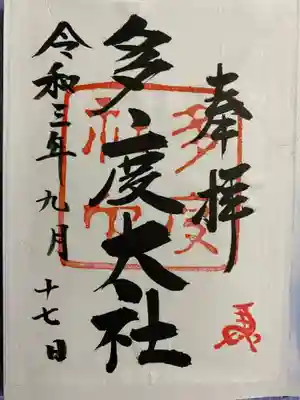 奉拝
多度大社
令和三年九月十七日
多度
神社
馬